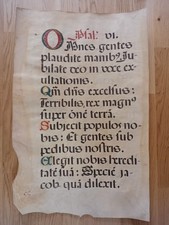 Psal. vi.
Omnes gentes
plaudite manibꝰ Ju
bilate deo in voce ex
ultationis.
Qm̄ dn̄s excelsus:
Terribilis, rex magnꝰ
super om̄e terrā.
Subjecit populos no
bis: Et gentes sub
pedibus nostris.
Elegit nobis hæredi
tatē suā: Speciē Ja
cob. quā dilexit.